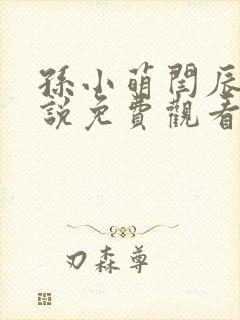 孫小萌閆辰
說免費觀看
刃森尊